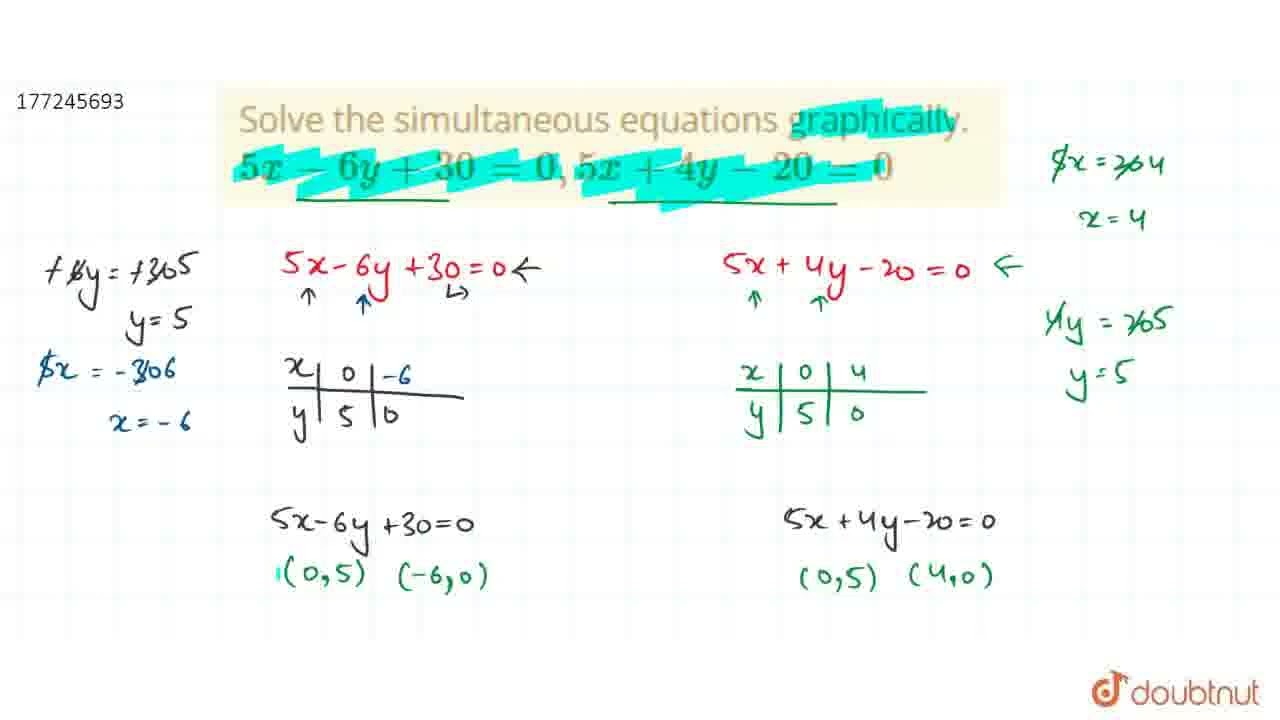 177245693
Solve the simultaneous equations graphically.
5x − 6y + 30 = 0, 5x + 4y − 20 = 0
5x = 20 4
x = 4
+6y = +30 5
y = 5
5x = -30 6
x = -6
5x - 6y + 30 = 0 ←
x | 0 | -6
y | 5 | 0
5x + 4y - 20 = 0 ←
x | 0 | 4
y | 5 | 0
4y = 20 5
y = 5
5x - 6y + 30 = 0
(0,5) (-6,0)
5x + 4y - 20 = 0
(0,5) (4,0)
doubtnut